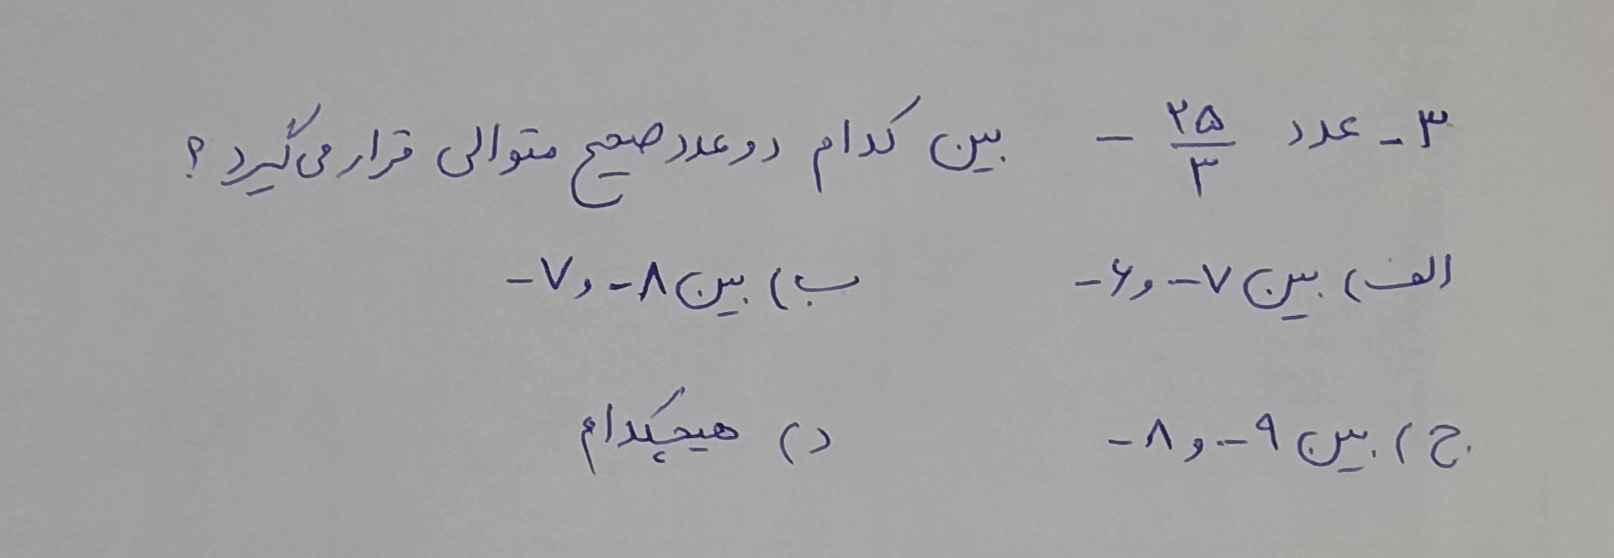 ۳- عدد ۲۵/۳ - بین کدام دو عدد صحیح متوالی قرار می‌گیرد ؟
الف) بین ۷- و ۶- ب) بین ۸- و ۷-
ج) بین ۹- و ۸- د) هیچکدام